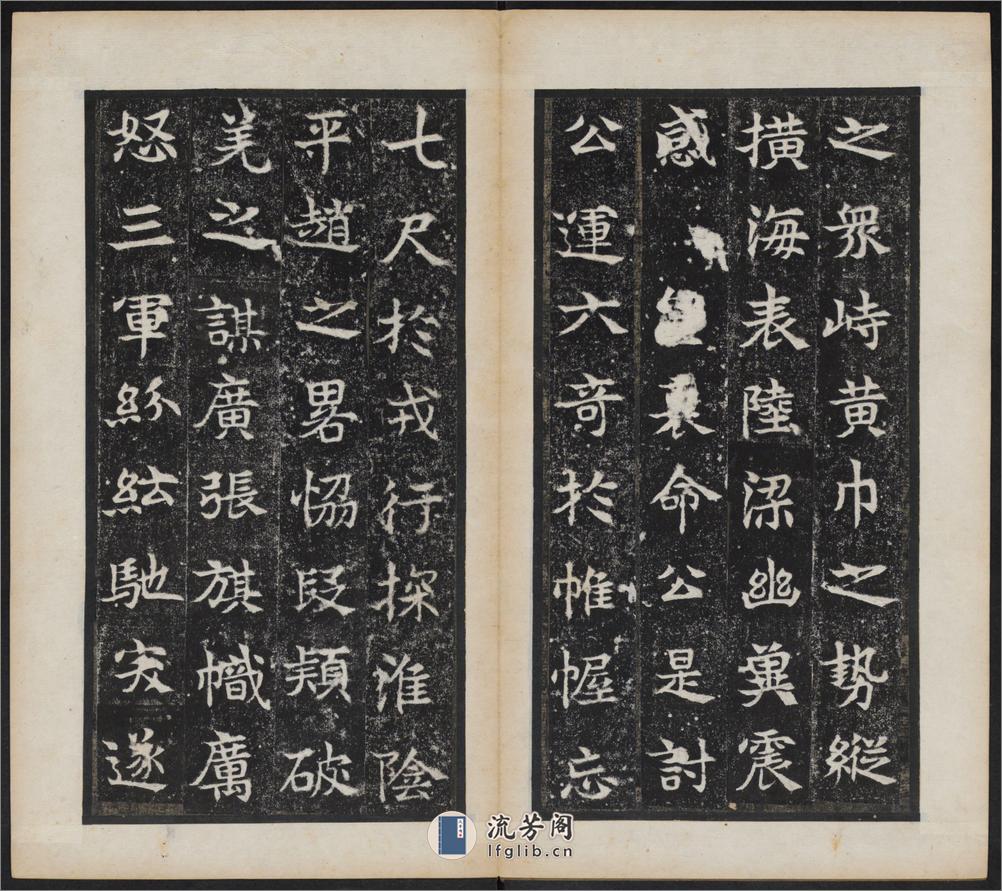 之眾峙黃巾之勢縱
擴海表陸梁幽冀震
惑襄命公是討
公運六奇於帷幄忘
七尺於戎行探淮陰
平趙之畧恊段熲破
羌之謀廣張旗幟厲
怒三軍紛紜馳突遂
流芳阁
lfglib.cn